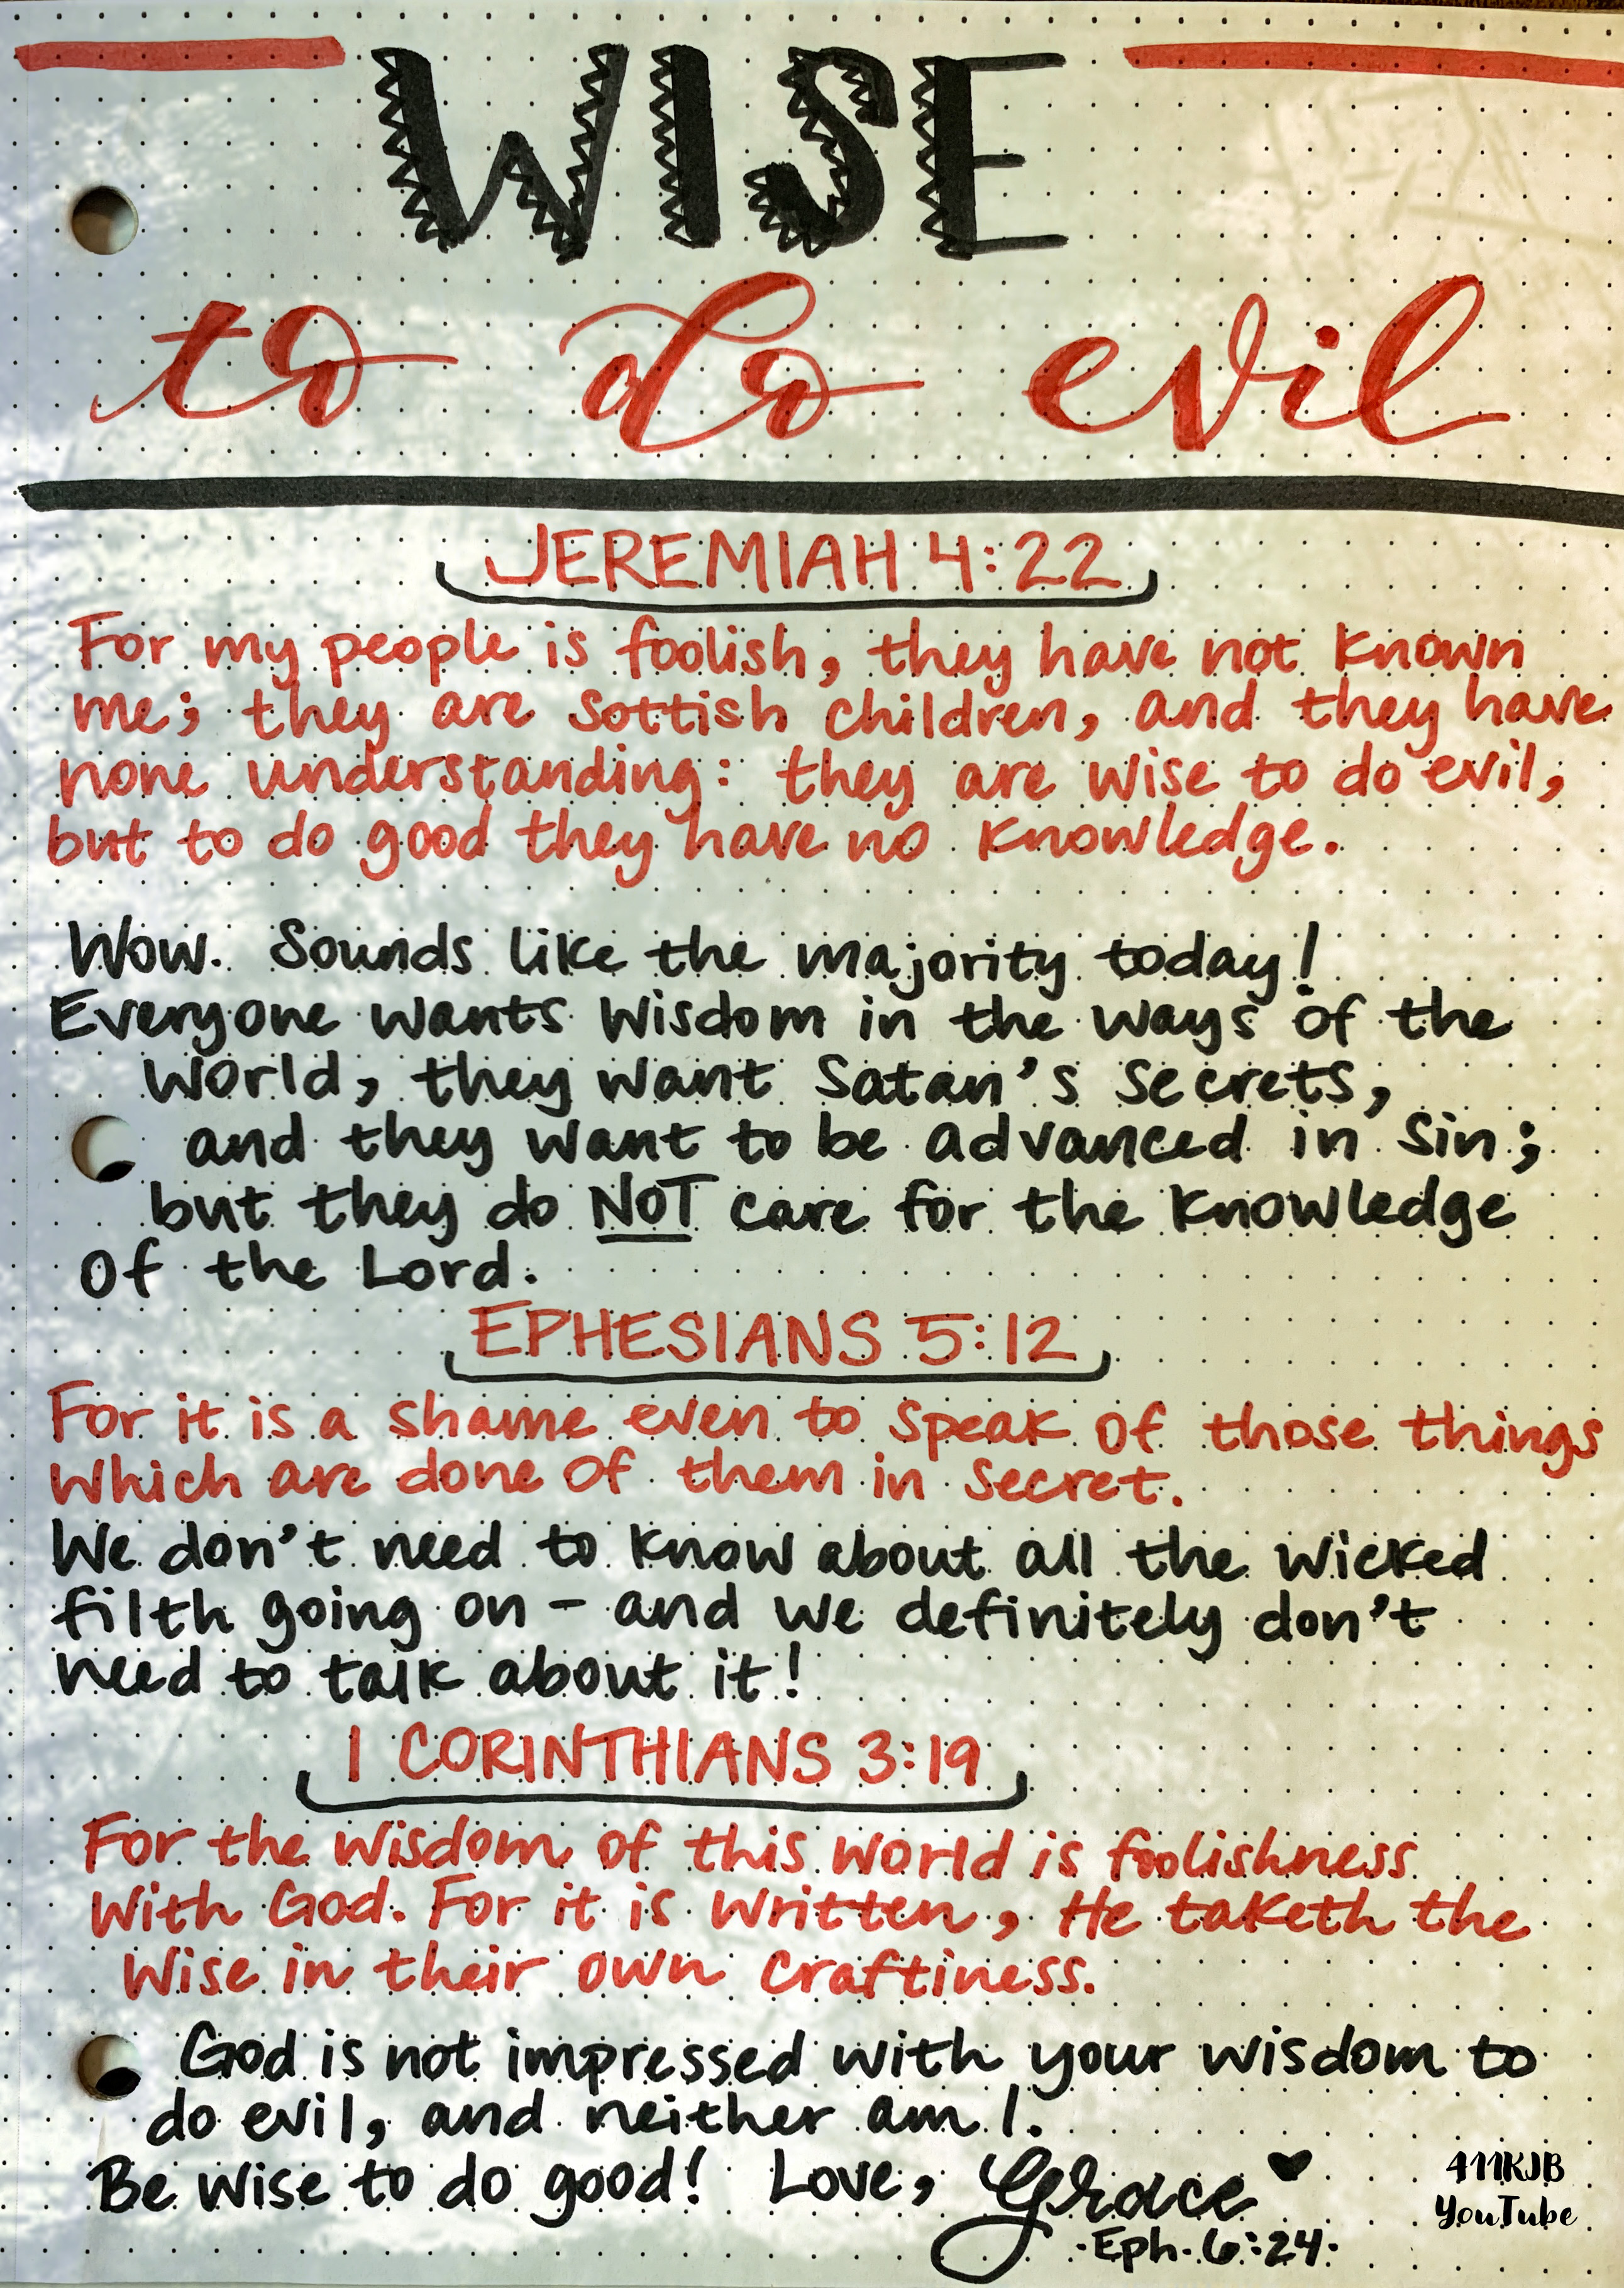 WISE
to do evil
JEREMIAH 4:22
For my people is foolish, they have not known
me; they are sottish children, and they have
none understanding: they are wise to do evil,
but to do good they have no knowledge.
Wow. Sounds like the majority today!
Everyone wants wisdom in the ways of the
world, they want Satan's secrets,
and they want to be advanced in sin;
but they do NOT care for the knowledge
of the Lord.
EPHESIANS 5:12
For it is a shame even to speak of those things
which are done of them in secret.
We don't need to know about all the wicked
filth going on - and we definitely don't
need to talk about it!
1 CORINTHIANS 3:19
For the wisdom of this world is foolishness
with God. For it is written, He taketh the
wise in their own craftiness.
God is not impressed with your wisdom to
do evil, and neither am I.
Be wise to do good! Love, Grace ♥
·Eph. 6:24·
411KJB
YouTube